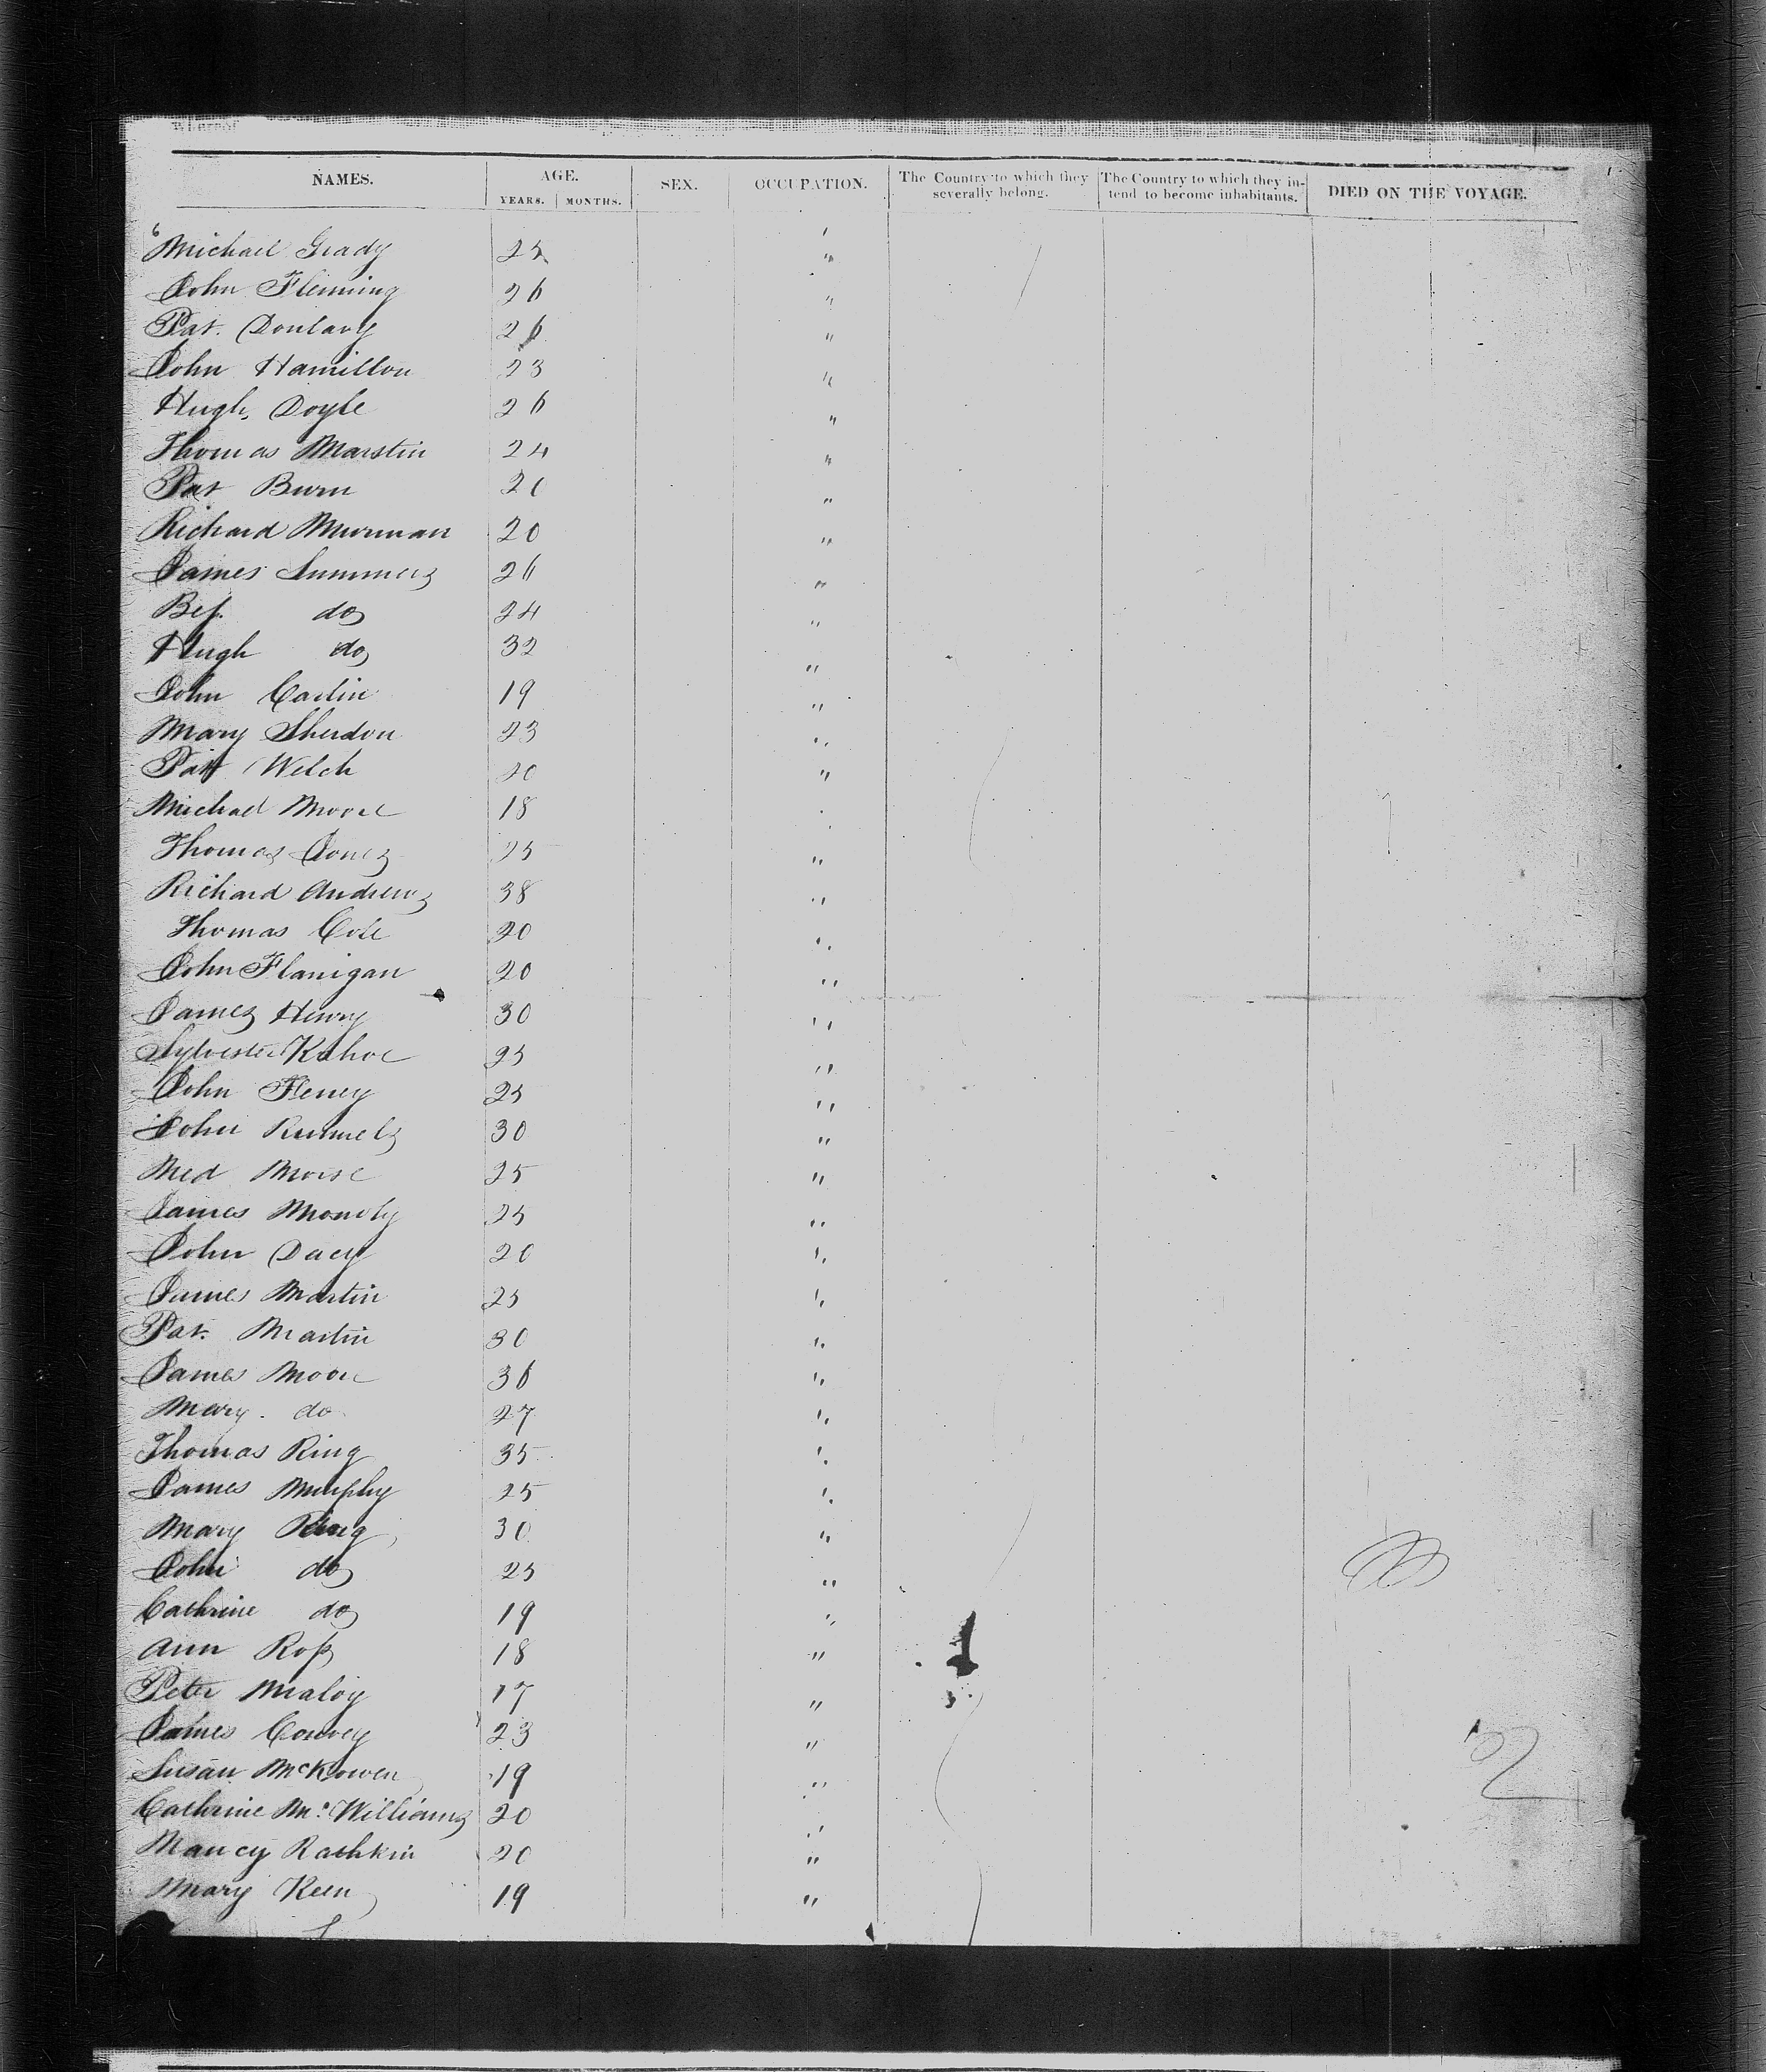 NAMES. AGE. SEX. OCCUPATION. The Country to which they severally belong. The Country to which they intend to become inhabitants. DIED ON THE VOYAGE.
YEARS. MONTHS.
Michael Grady 25 "
John Fleming 26 "
Pat. Donlavy 26 "
John Hamilton 23 "
Hugh Doyle 26 "
Thomas Marstin 24 "
Pat Burn 20 "
Richard Murnan 20 "
James Summers 26 "
Bess. do 24 "
Hugh do 32 "
John Carlin 19 "
Mary Sherdon 23 "
Pat Welch 20 "
Michael Moore 18 "
Thomas Jones 25 "
Richard Andrews 38 "
Thomas Cole 20 "
John Flanigan 20 "
James Henry 30 "
Sylvester Kahoe 25 "
John Feney 25 "
John Rummels 30 "
Med Morse 25 "
James 25 "
John Dacy 20 "
James Martin 25 "
Pat. Martin 30 "
James Moore 36 "
Mary. do 27 "
Thomas Ring 35 "
James Murphy 25 "
Mary Ring 30 "
John do 25 "
Cathrine do 19 "
Ann Ross 18 "
Peter Maloy 17 "
James Convey 23 "
Susan McKowen 19 "
Cathrine Mc Williams 20 "
Nancy Rathkin 20 "
Mary Keen 19 "